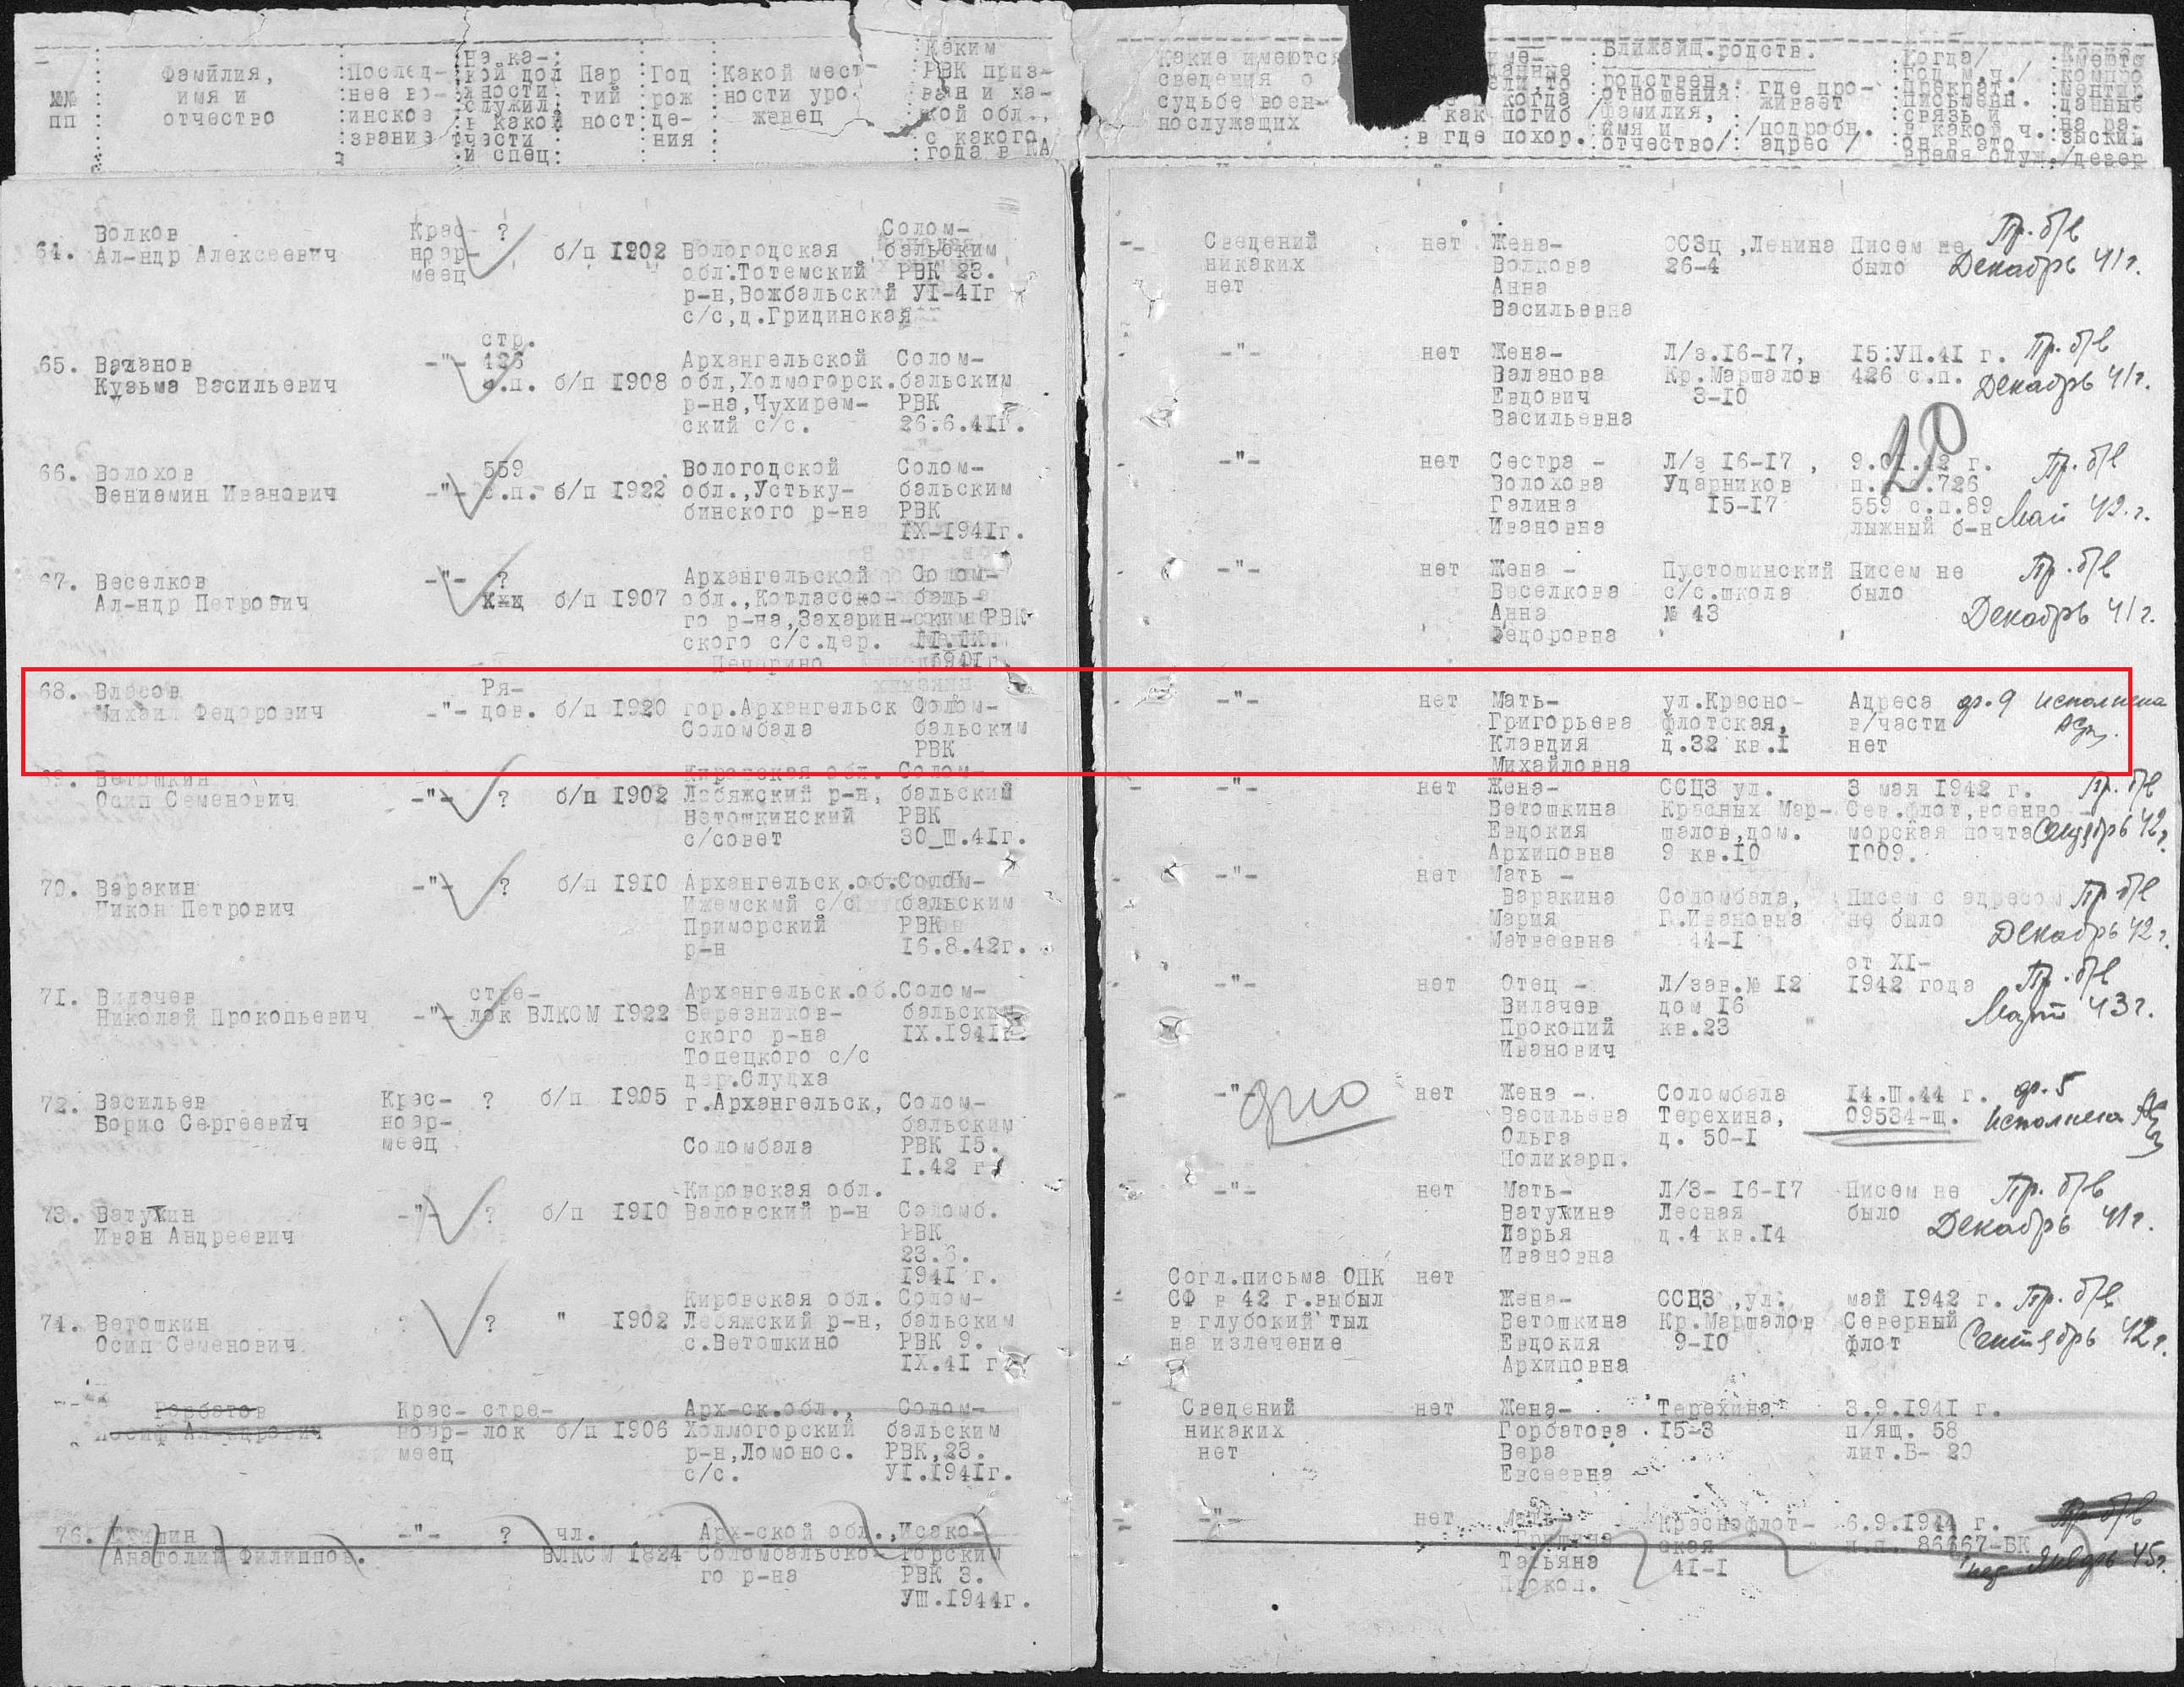 №№ пп
Фамилия, имя и отчество
Послед- нее во- инское звание
на ка- кой дол жности служил, в какой части и спец.
Пар тий ност
Год рож де- ния
Какой мест- ности уро- женец
Каким РВК приз- ван и ка- кой обл., с какого года в КА
Какие имеются сведения о судьбе воен- нослужащих
когда как погиб в где похор.
Ближайш.родств.
родствен. отношения /фамилия, имя и отчество/
где про- живает /подробн. адрес /
Когда/ год м.ч./ прекрат. письменн. связь и в какой ч. он в это время служ.
64. Волков
Ал-ндр Алексеевич
Крас- ноар- меец
?
б/п 1902
Вологодская
обл.Тотемский
р-н,Вожбальский
с/с,д.Грицинская
Солом-
бальским
РВК 23.
УI-41г
Сведений
никаких
нет
нет
Жена-
Волкова
Анна
Васильевна
ССЗц ,Ленина
26-4
Писем не
было
Пр. б/в
Декабрь 41г.
65. Валанов
Кузьма Васильевич
-"-
стр.
426
с.п. б/п 1908
Архангельской
обл,Холмогорск.
р-на,Чухирем-
ский с/с.
Солом-
бальским
РВК
26.6.41г.
-"-
нет
Жена-
Валанова
Евдович
Васильевна
Л/з.16-17,
Кр.Маршалов
3-10
15.УП.41 г.
426 с.п.
Пр. б/в
Декабрь 41г.
66. Волохов
Вениемин Иванович
-"-
559
с.п. б/п 1922
Вологодской
обл.,Устьку-
бинского р-на
Солом-
бальским
РВК
IX-1941г.
-"-
нет
Сестра -
Волохова
Галина
Ивановна
Л/з 16-17 ,
Ударников
15-17
559 с.п.89
лыжный б-н
Пр. б/в
Май 42.г.
67. Веселков
Ал-ндр Петрович
-"- ?
б/п 1907
Архангельской
обл.,Котласско-
го р-на,Захарин-
ского с/с.дер.
Печарино
Солом-
баль-
ским РВК
-"-
нет
Жена -
Веселкова
Анна
Федоровна
Пустошинский
с/с.школа
№ 43
Писем не
было
Пр. б/в
Декабрь 41г.
68. Власов
Михаил Федорович
-"-
Ря-
дов. б/п 1920
гор.Архангельск
Соломбала
Солом-
бальским
РВК
-"-
нет
Мать-
Григорьева
Клавдия
Михайловна
ул.Красно-
флотская,
д.32 кв.1
Адреса
в/части
нет
ф.9 исполнена
69. Ветошкин
Осип Семенович
-"- ? б/п 1902
Кировская обл.
Лебяжский р-н,
Ветошкинский
с/совет
Солом-
бальский
РВК
30_Ш.41г.
-"-
нет
Жена-
Ветошкина
Евдокия
Архиповна
ССЦЗ ул.
Красных Мар-
шалов,дом.
9 кв.10
3 мая 1942 г.
Сев.флот,военно
морская почта
1009.
Пр. б/в
Сентябрь 42г.
70. Варакин
Никон Петрович
-"- ? б/п 1910
Архангельск.об.
Ижемский с/с
Приморский
р-н
Солом-
бальским
РВК
16.8.42г.
-"-
нет
Мать -
Варакина
Мария
Матвеевна
Соломбала,
Г.Ивановна
44-1
Писем с адресом
не было
Пр б/в
Декабрь 42г.
71. Вилачев
Николай Прокопьевич
-"-
стре-
лок ВЛКСМ 1922
Архангельск.об.
Березников-
ского р-на
Топецкого с/с
дер.Слудха
Солом-
бальским
IX.1941г.
-"-
нет
Отец -
Вилачев
Прокопий
Иванович
Л/зав.№ 12
дом 16
кв.23
от XI-
1942 года
Пр. б/в
Март 43г.
72. Васильев
Борис Сергеевич
Крас-
ноар-
меец
? б/п 1905
г.Архангельск,
Соломбала
Солом-
бальским
РВК 15.
1.42 г.
-"-
нет
Жена -
Васильева
Ольга
Поликарп.
Соломбала
Терехина,
д. 50-1
14.Ш.44 г.
09534-щ.
ф.5
исполнена
73. Ватужин
Иван Андреевич
-"- ? б/п 1910
Кировская обл.
Валовский р-н
Соломб.
РВК
23.6.
1941 г.
-"-
нет
Мать-
Ватужина
Дарья
Ивановна
Л/З- 16-17
Лесная
д.4 кв.14
Писем не
было
Пр. б/в
Декабрь 41г.
74. Ветошкин
Осип Семенович
? ? " 1902
Кировская обл.
Лебяжский р-н,
с.Ветошкино
Солом-
бальским
РВК 9.
IX.41 г
Согл.письма ОПК
СФ в 42 г.выбыл
в глубокий тыл
на излечение
нет
Жена-
Ветошкина
Евдокия
Архиповна
ССЦЗ ,ул.
Кр.Маршалов
9-10
май 1942 г.
Северный
флот
Пр. б/в
Сентябрь 42г.
Горбатов
Иосиф Ал-ндрович
Крас-
ноар-
меец
стре-
лок б/п 1906
Арх-ск.обл.,
Холмогорский
р-н,Ломонос.
с/с.
Солом-
бальским
РВК,23.
УI.1941г.
Сведений
никаких
нет
нет
Жена-
Горбатова
Вера
Евсеевна
Терехина
15-3
3.9.1941 г.
п/ящ. 58
лит.Б- 20
76.
Анатолий Филиппов.
-"- ? чл.
ВЛКСМ 1824
Арх-ской обл.,
Соломбальско-
го р-на
Исако-
горским
РВК 3.
УШ.1944г.
-"-
нет
Мать-
Татьяна
Прокоп.
Краснофлот-
ская
41-1
6.9.1944 г.
п.п. 86667-БК
Пр. б/в
Январь 45г.